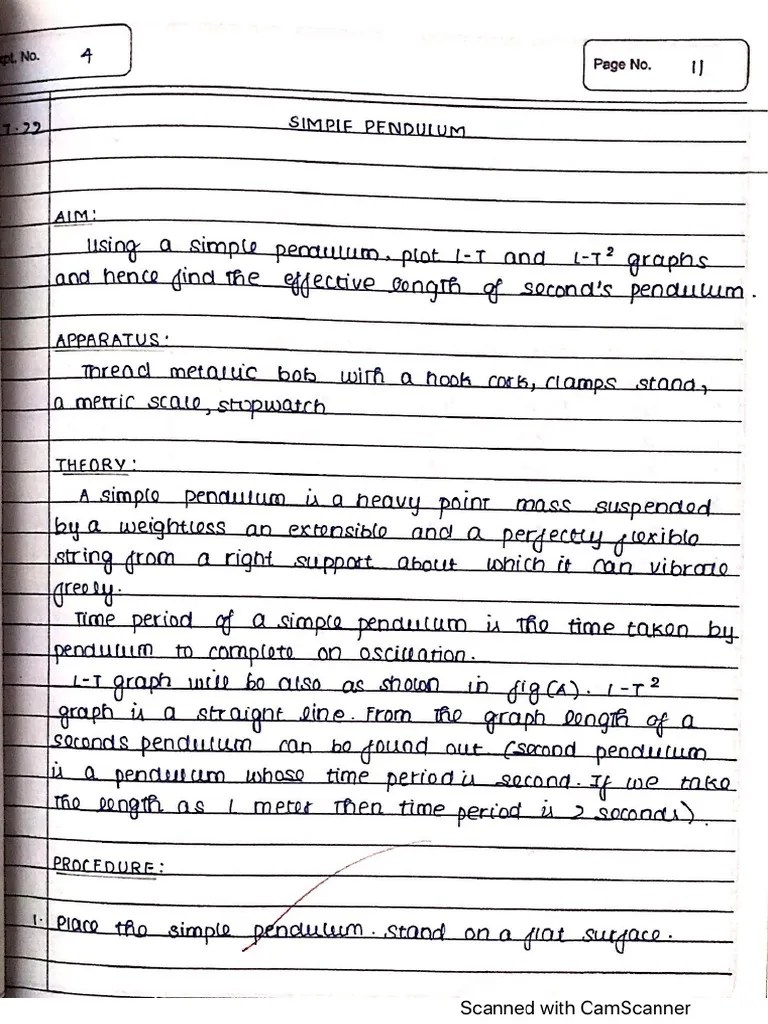 pt. No. 4
Page No. 11
7.22
SIMPLE PENDULUM
AIM:
Using a simple pendulum, plot L-T and L-T² graphs
and hence find the effective length of second's pendulum.
APPARATUS:
Thread metallic bob with a hook cork, clamps stand,
a metric scale, stopwatch
THEORY:
A simple pendulum is a heavy point mass suspended
by a weightless an extensible and a perfectly flexible
string from a right support about which it can vibrate
freely.
Time period of a simple pendulum is the time taken by
pendulum to complete on oscillation.
L-T graph will be also as shown in fig(A). L-T²
graph is a straight line. From the graph length of a
seconds pendulum can be found out. (second pendulum
is a pendulum whose time period is second. If we take
the length as 1 meter then time period is 2 seconds).
PROCEDURE:
1. Place the simple pendulum. stand on a flat surface.
Scanned with CamScanner